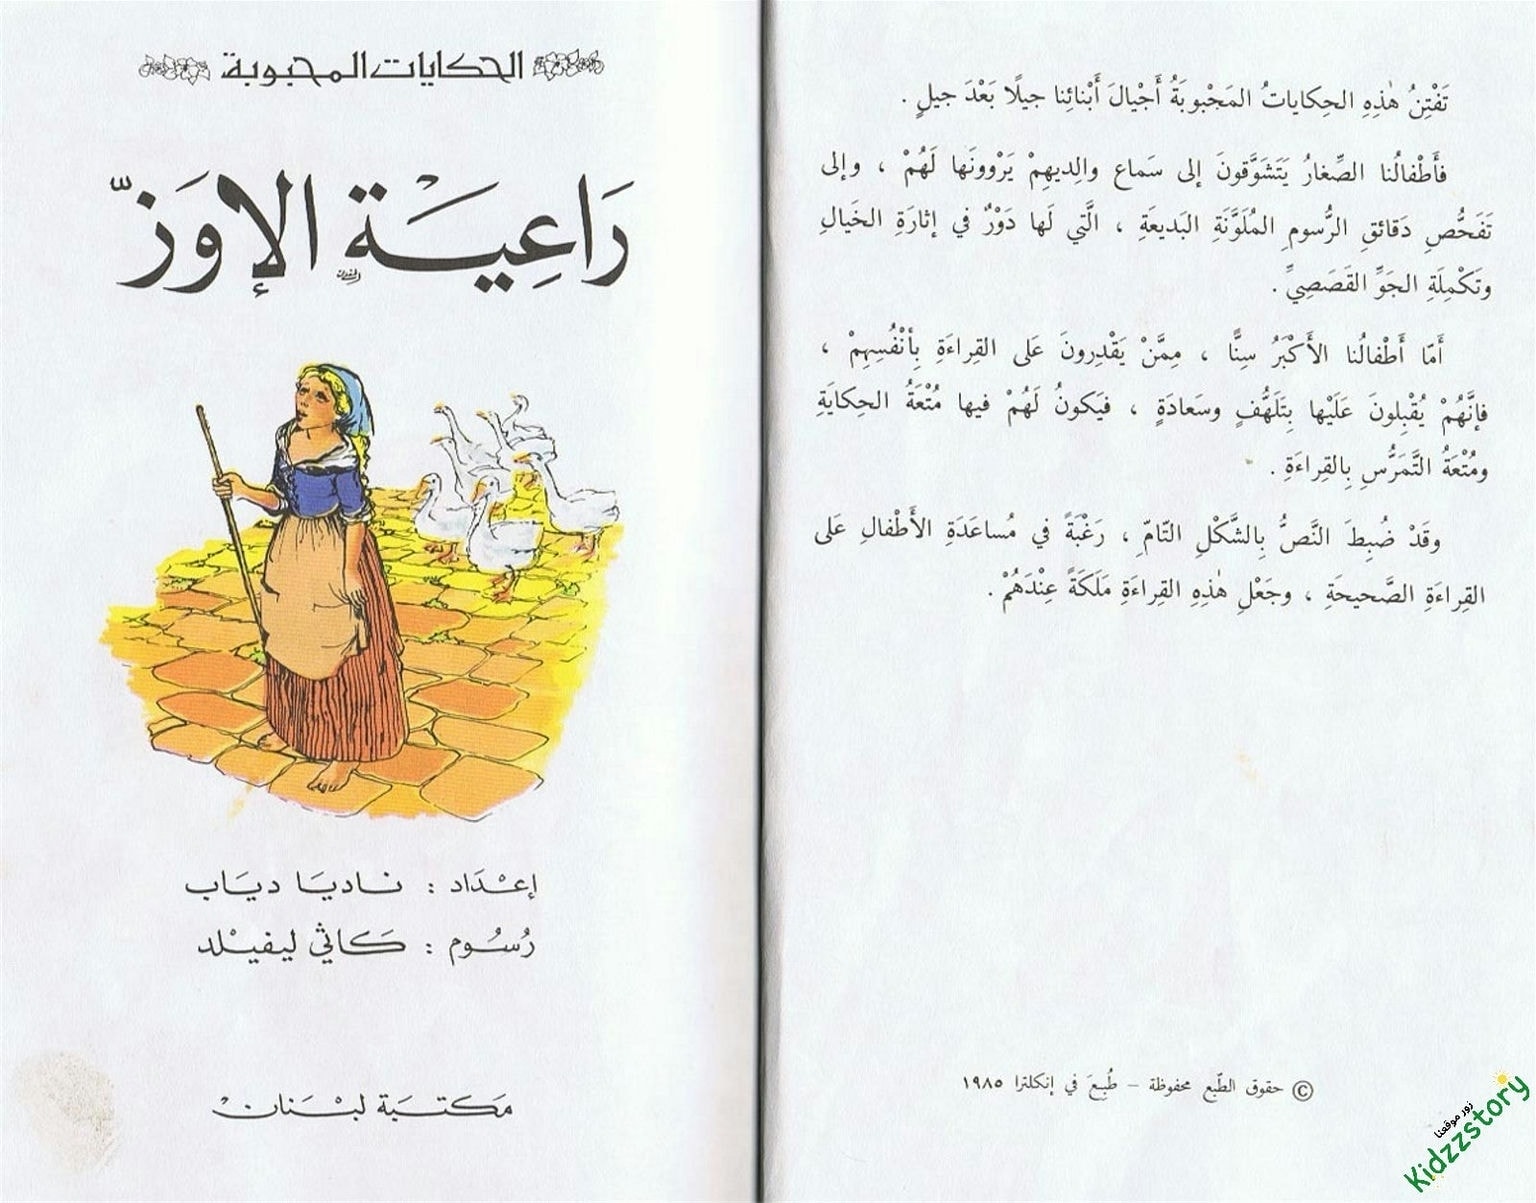 تَفْتِنُ هٰذِهِ الحِكاياتُ المَحْبوبَةُ أَجْيالَ أَبْنائِنا جيلًا بَعْدَ جيلٍ .
فَأَطْفالُنا الصِّغارُ يَتَشَوَّقونَ إلى سَماع والِديهِمْ يَرْوونَها لَهُمْ ، وإلى
تَفَحُّصِ دَقائقِ الرُّسومِ المُلَوَّنَةِ البَديعَةِ ، الَّتي لَها دَوْرٌ في إثارَةِ الخَيالِ
وتَكْمِلَةِ الجَوِّ القَصَصِيِّ .
أَمّا أَطْفالُنا الأَكْبَرُ سِنًّا ، مِمَّنْ يَقْدِرونَ عَلى القِراءَةِ بِأَنْفُسِهِمْ ،
فإنَّهُمْ يُقْبِلونَ عَلَيْها بِتَلَهُّفٍ وسَعادَةٍ ، فيَكونُ لَهُمْ فيها مُتْعَةُ الحِكايَةِ
ومُتْعَةُ التَّمَرُّسِ بِالقِراءَةِ .
وقَدْ ضُبِطَ النَّصُّ بِالشَّكْلِ التّامِّ ، رَغْبَةً في مُساعَدَةِ الأَطْفالِ عَلى
القِراءَةِ الصَّحيحَةِ ، وجَعْلِ هٰذِهِ القِراءَةِ مَلَكَةً عِنْدَهُمْ .
© حقوق الطّبع محفوظة – طُبِعَ في إنكلترا ١٩٨٥
زور موقعنا
Kidzzstory
الحكايات المحبوبة
رَاعِيَة الإوَزّ
إعْدَاد : ناديَا ديَاب
رُسُوم : كَاثي ليفيْلد
مَكتبَة لبْنَان